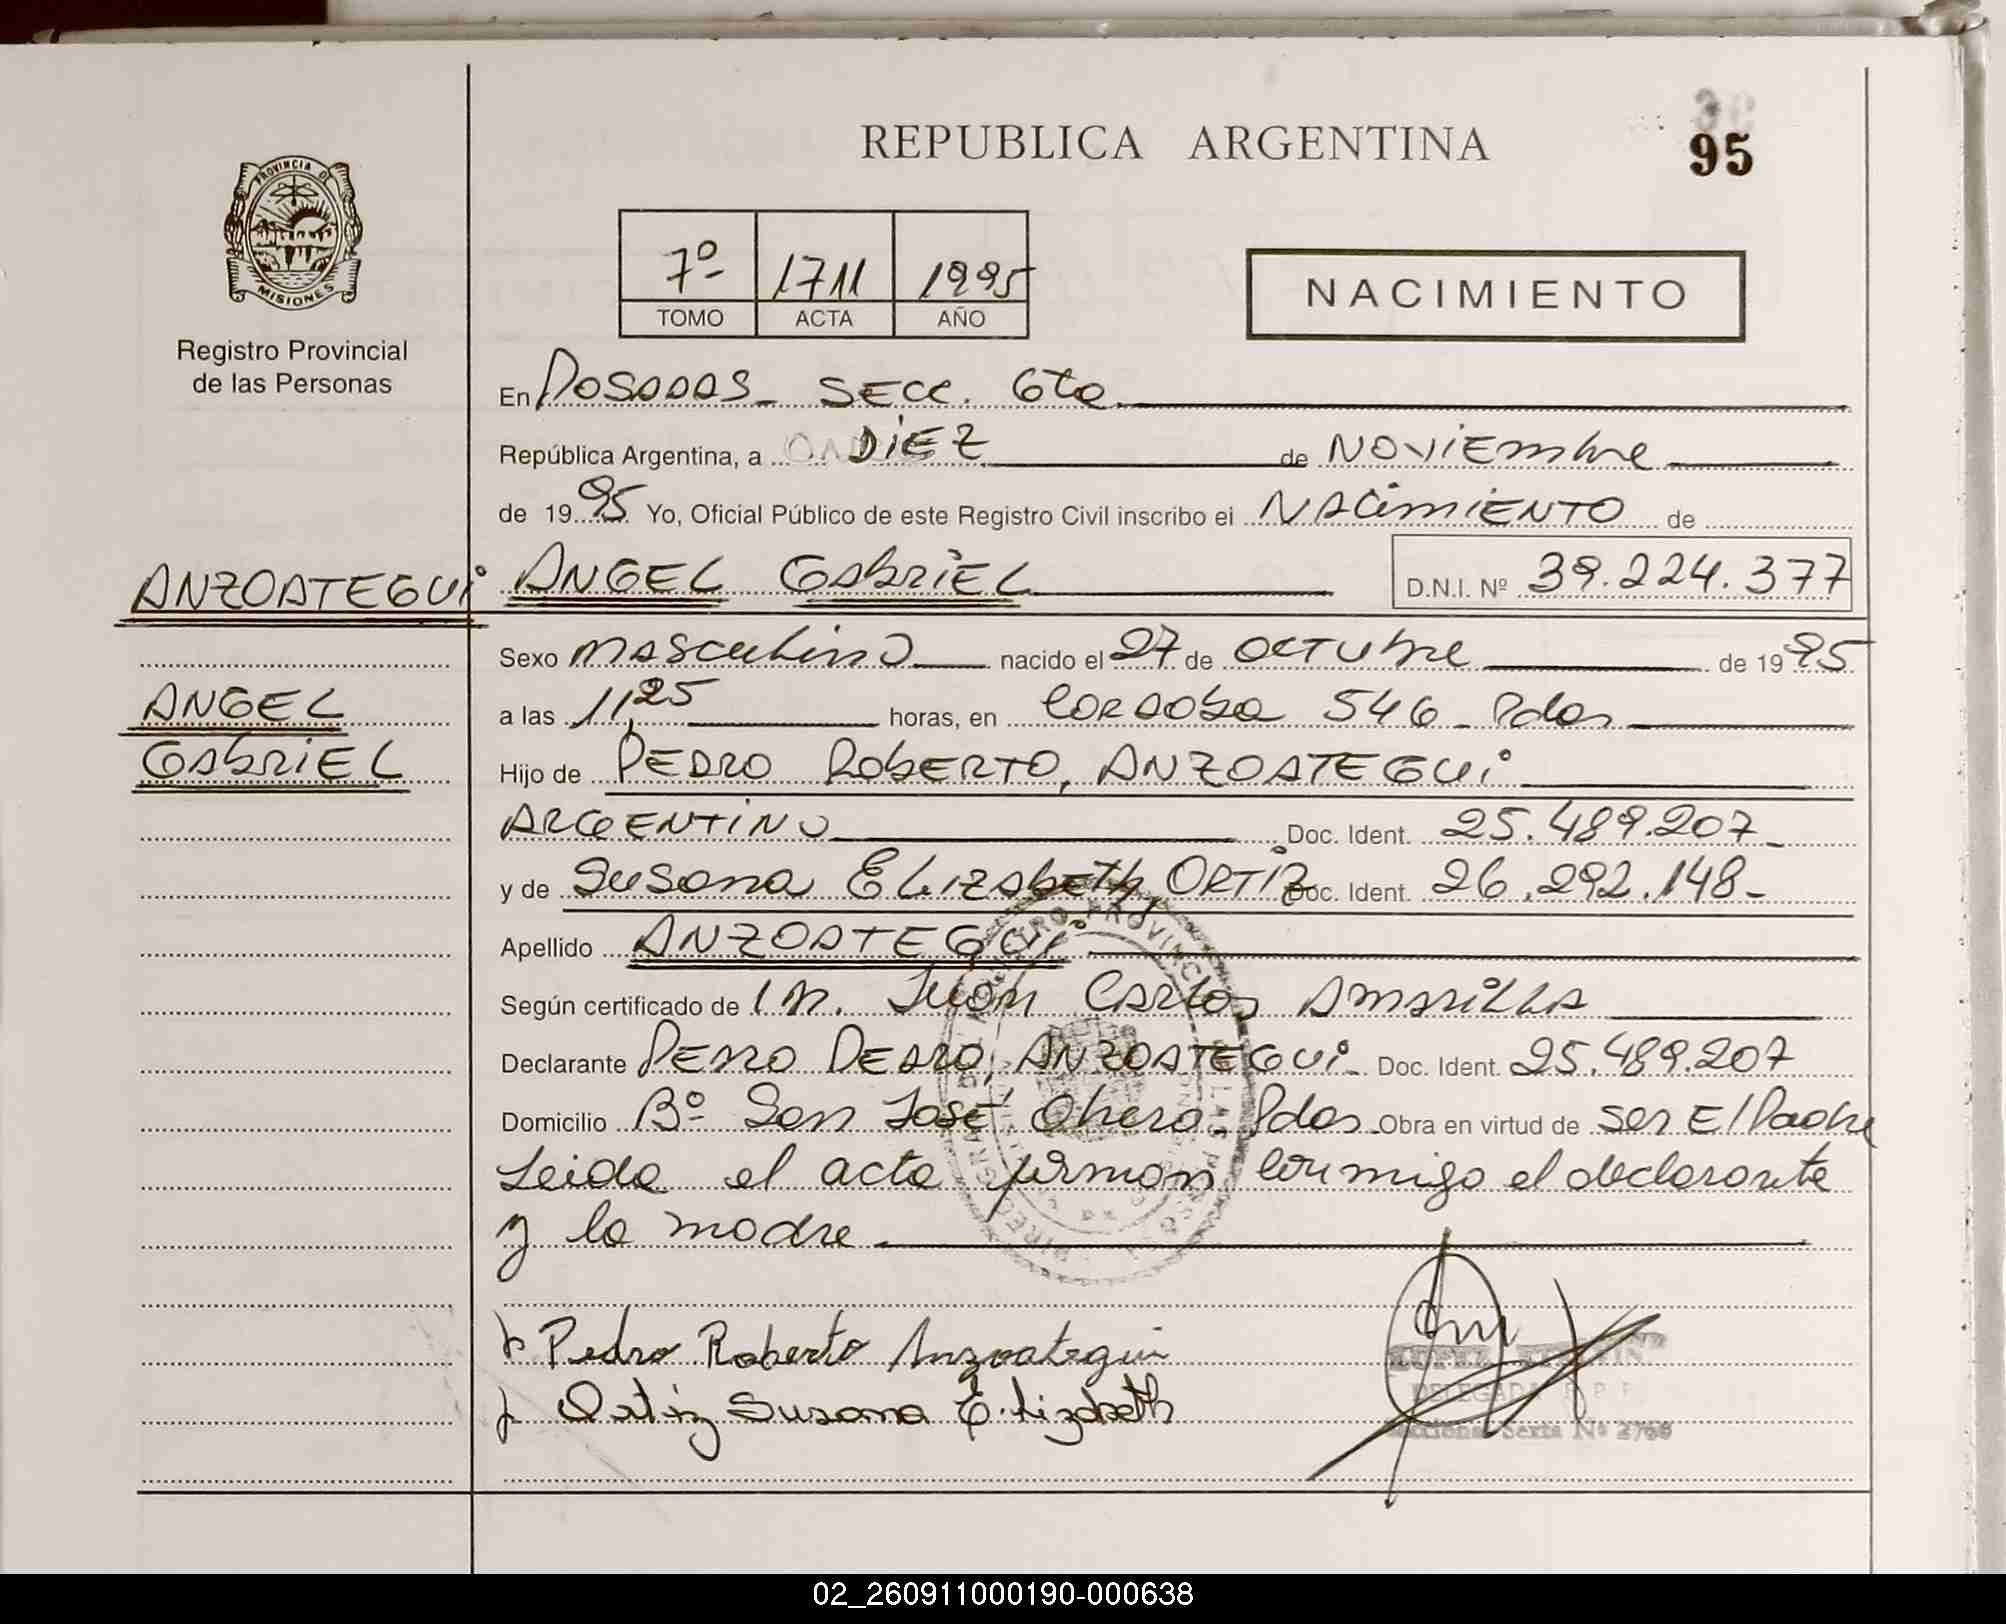 REPUBLICA ARGENTINA
95
PROVINCIA DE
MISIONES
Registro Provincial
de las Personas
7º 1711 1995
TOMO ACTA AÑO
NACIMIENTO
En POSADAS - SECC. 6ta
República Argentina, a DIEZ de NOVIEMbre
de 1995 Yo, Oficial Público de este Registro Civil inscribo el NACIMIENTO de
ANZOATEGUI ANGEL GAbRIEL D.N.I. Nº 39.224.377
Sexo MASculino nacido el 27 de OCTUbre de 1995
ANGEL
a las 11,25 horas, en CORDOba 546 - Pdas
GAbRIEL
Hijo de PEDRO RObERTO, ANZOATEGUI
ARGENTINO Doc. Ident. 25.489.207-
y de SUSana ELIZAbETh, ORTIZ Doc. Ident. 26.292.148-
Apellido ANZOATEGUI
Según certificado de Juan CARLos AMARILLA
Declarante PEDRO PEDRO, ANZOATEGUI - Doc. Ident. 25.489.207
Domicilio Bº San José Obrero - Pdas - Obra en virtud de SER El Padre
Leida el acta firman conmigo el declarante
y la madre
Pedro Roberto Anzoategui
Ortiz Susana Elizabeth
DELEGADA R P P
Seccional Sexta Nº 2768
02_260911000190-000638